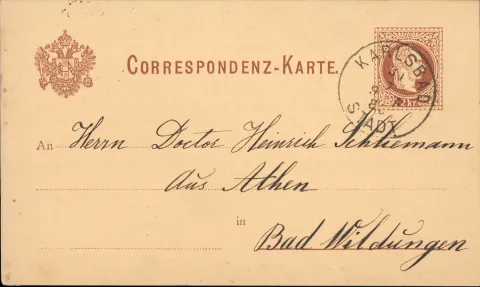 CORRESPONDENZ-KARTE.
KARLSBAD
STADT
2 Kr.
An Herrn Doctor Heinrich Schliemann
Aus Athen
in
Bad Wildungen